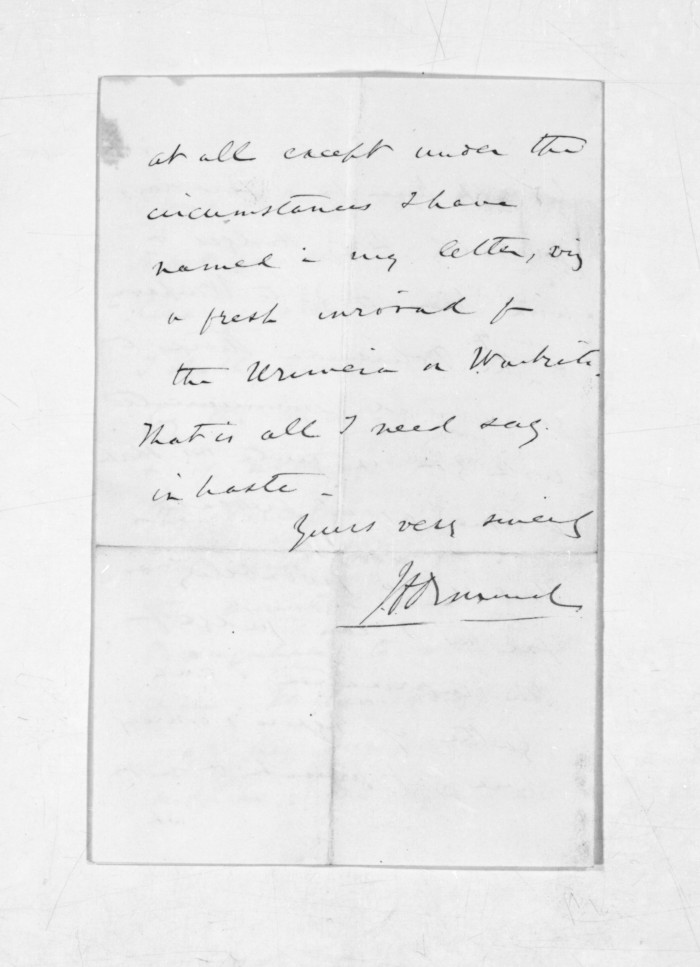 at all except under the
circumstances I have
named in my letter, viz
a fresh inroad of
the Urewera or Waikato.
That is all I need say
in haste –
Yours very sincerely